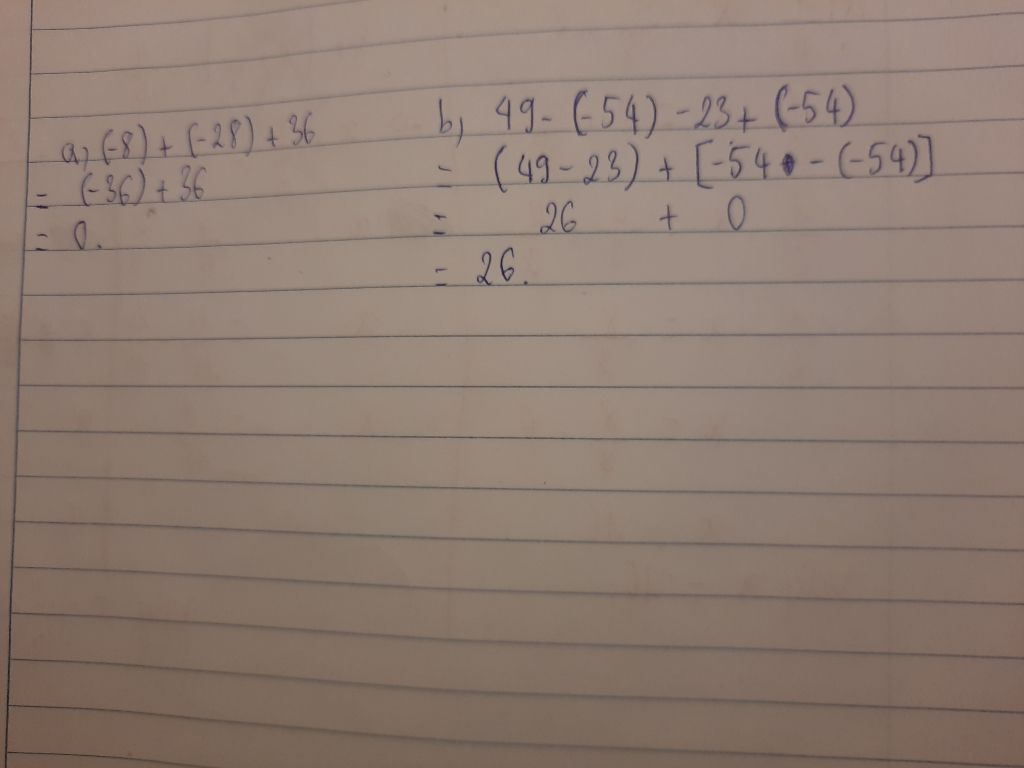 a, (-8) + (-28) + 36
= (-36) + 36
= 0.
b, 49 - (-54) - 23 + (-54)
= (49 - 23) + [-54 - (-54)]
= 26 + 0
= 26.